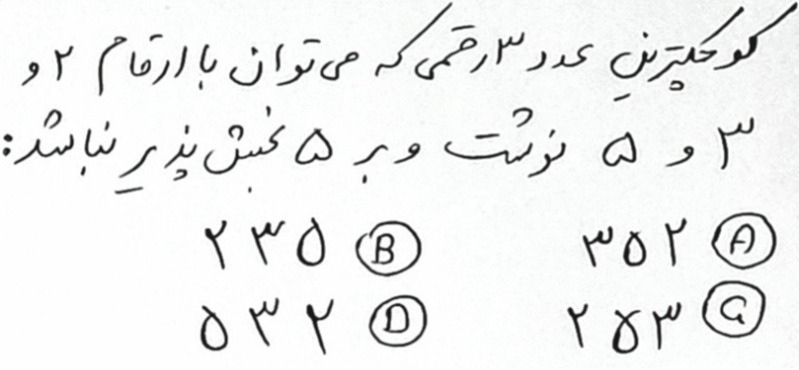 کوچکترین عدد ۳ رقمی که می‌توان با ارقام ۲ و
۳ و ۵ نوشت و بر ۵ بخش پذیر نباشد:
A ۳۵۲ B ۲۳۵
C ۲۵۳ D ۵۳۲